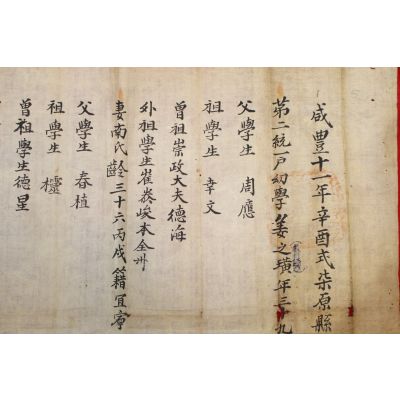 咸豊十一年辛酉式柒原縣
第二統一戶幼學姜之璜年三十九
父學生 周應
祖學生 幸文
曾祖崇政大夫德海
外祖學生崔峻本全州
妻南氏齡三十六丙戌籍宜寧
父學生 春植
祖學生
曾祖學生德星